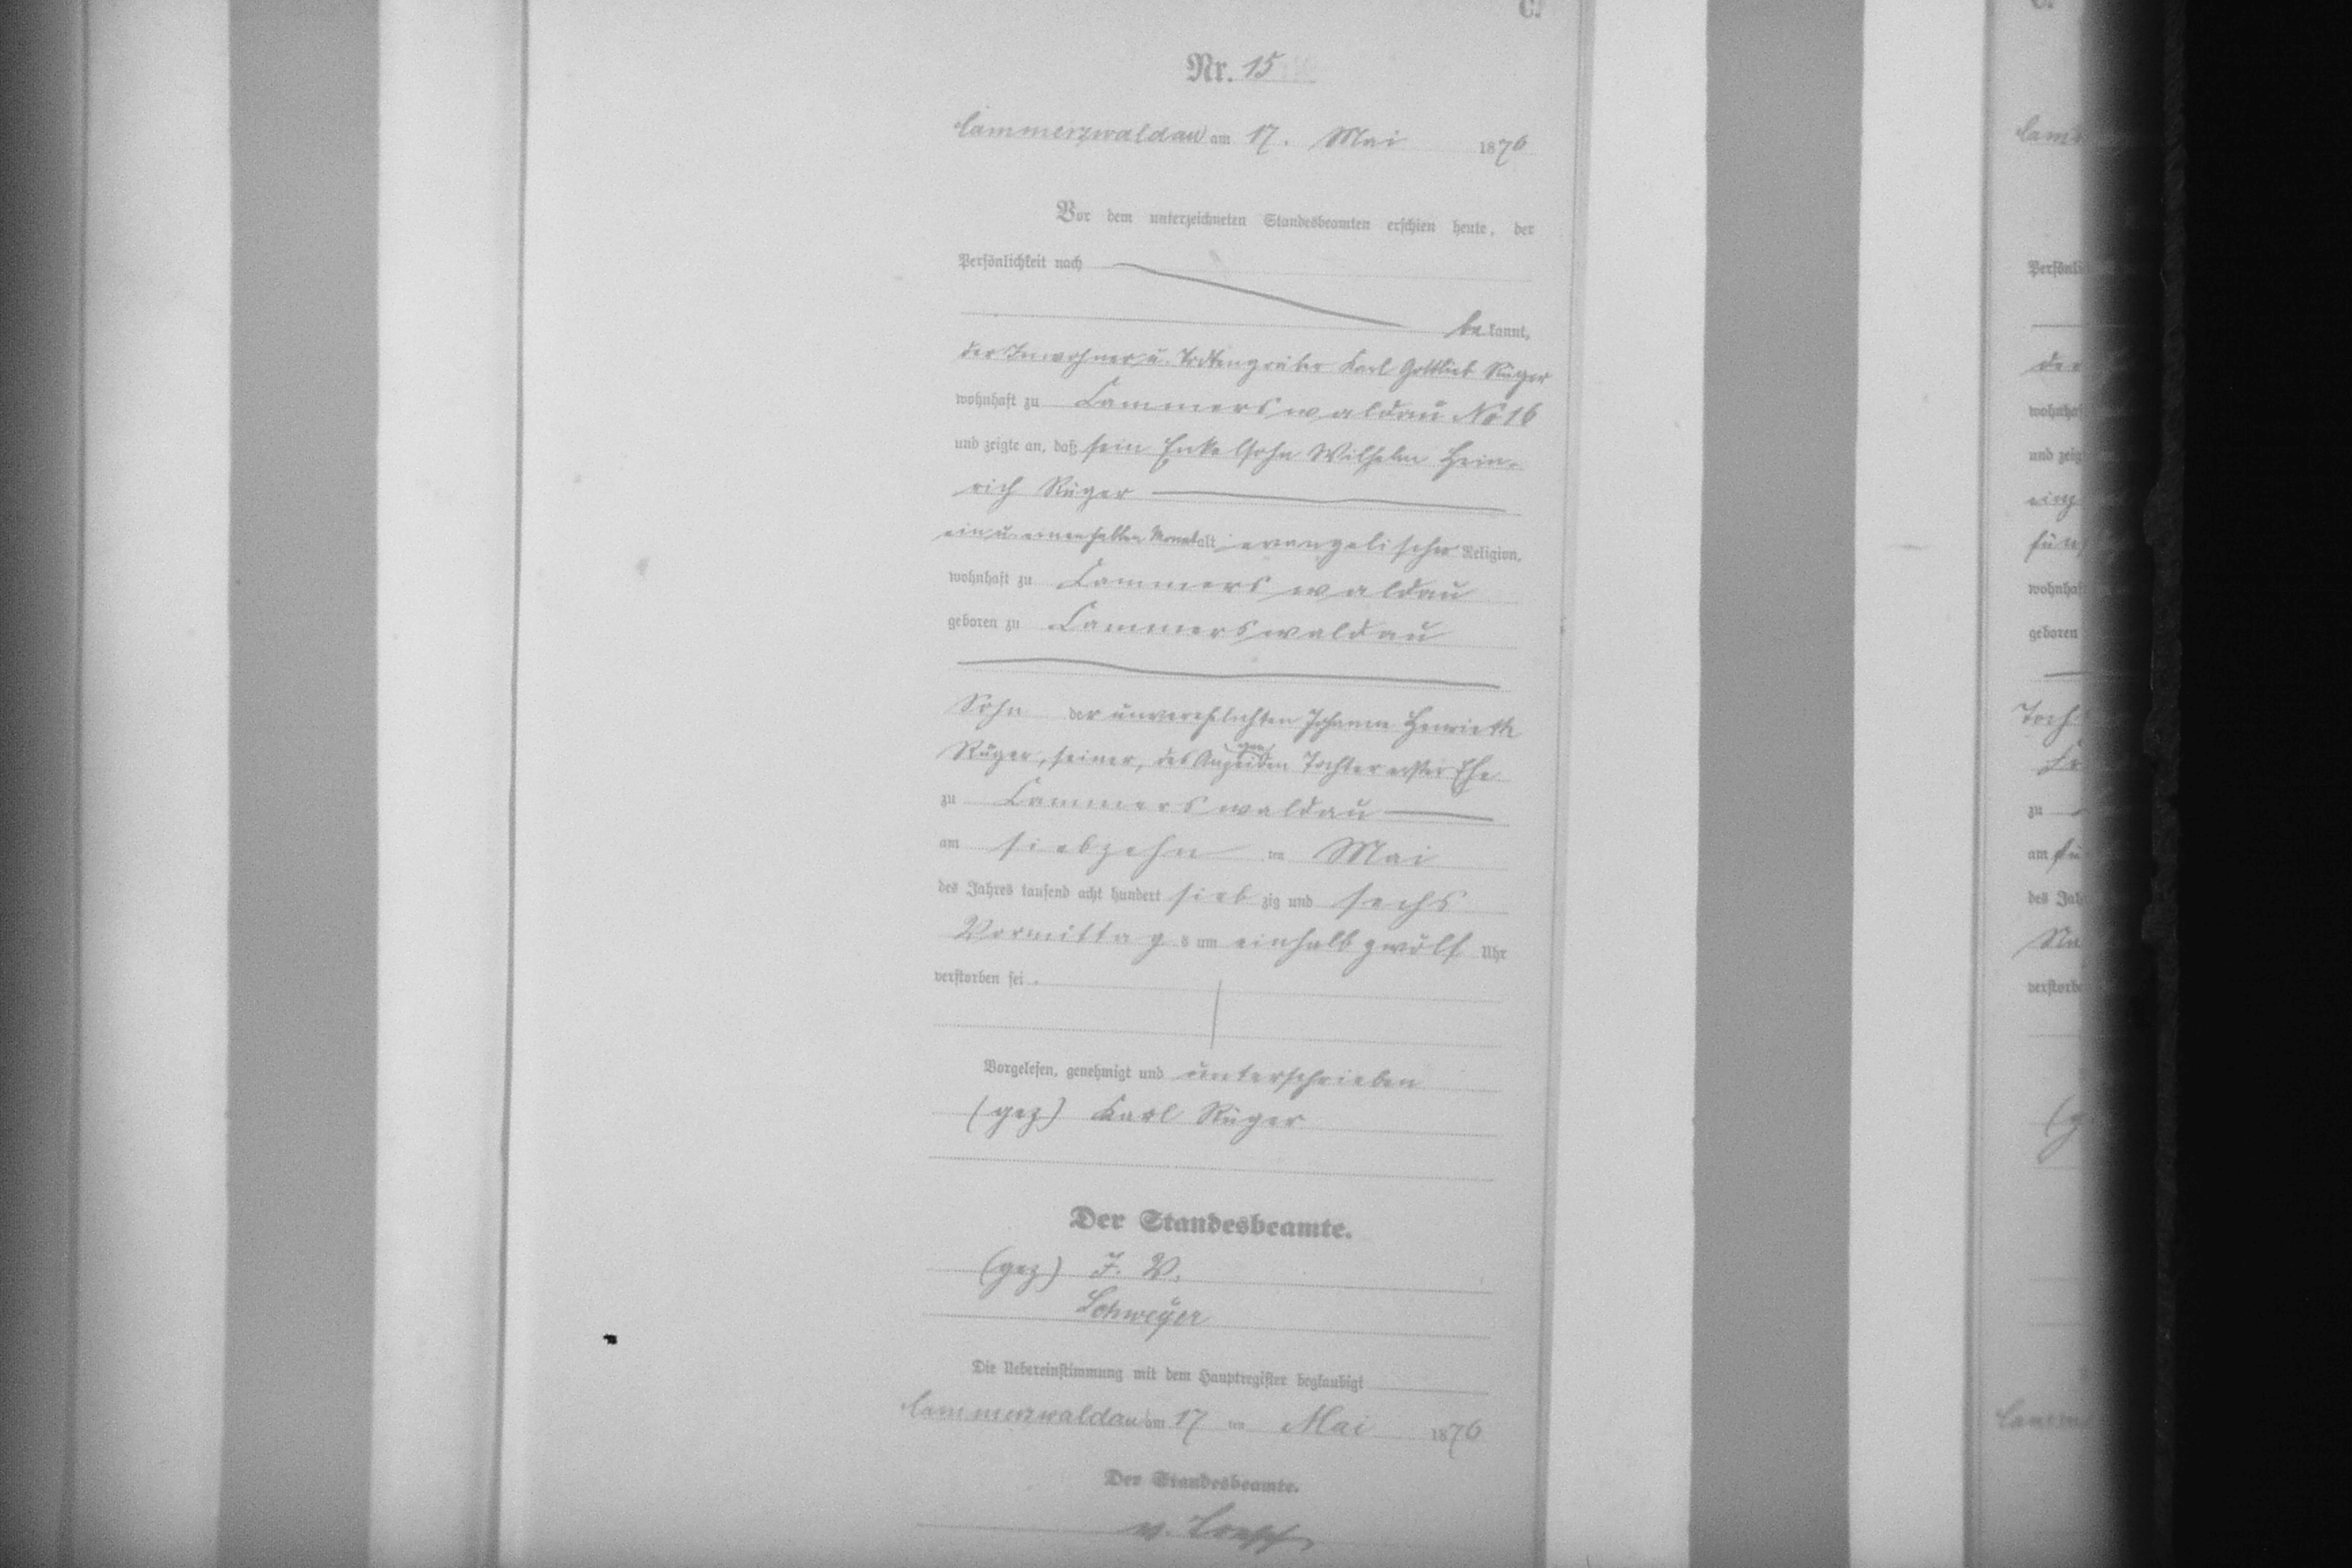 C.
Nr. 15
Cammerswaldau am 17. Mai 1876
Vor dem unterzeichneten Standesbeamten erschien heute, der
Persönlichkeit nach
be kannt,
der Inwohner u. Todtengräber Karl Gottlieb Rüger
wohnhaft zu Cammerswaldau No 16
und zeigte an, daß sein Enkelsohn Wilhelm Hein-
rich Rüger
ein u. einen halben Monat alt, evangelischer Religion,
wohnhaft zu Cammerswaldau
geboren zu Cammerswaldau
Sohn der unverehelichten Johanne Henriette
Rüger, seiner, des Anzeigenden Tochter erster Ehe
zu Cammerswaldau
am siebzehn ten Mai
des Jahres tausend acht hundert sieb zig und sechs
Vormittag s um einhalb zwölf Uhr
verstorben sei.
Vorgelesen, genehmigt und unterschrieben
(gez) Karl Rüger
Der Standesbeamte.
(gez) I. V.
Schweyer
Die Uebereinstimmung mit dem Hauptregister beglaubigt
Cammerswaldau am 17 ten Mai 1876
Der Standesbeamte.